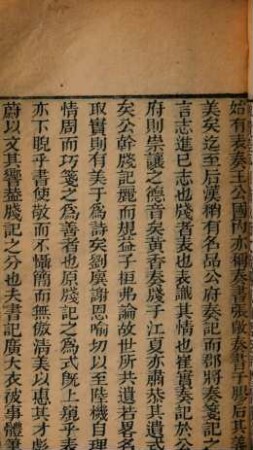 始有表奏王公國內亦稱奏書張敞奏書于膠后其義
美矣迄至后漢稍有名品公府奏記而郡將奏箋記之
言志進已志也牋者表也表識其情也崔寔奏記於公
府則崇讓之德音矣黃香奏牋于江夏亦肅恭其遺式
矣公幹牋記麗而規益子桓弗論故世所共遺若畧名
取實則有美于為詩矣劉廙謝恩喻切以至陸機自理
情周而巧箋之為善者也原牋記之為式既上窺乎表
亦下睨乎書使敬而不懾簡而無傲清美以惠其才彪
蔚以文其響盖牋記之分也夫書記廣大衣被事體筆